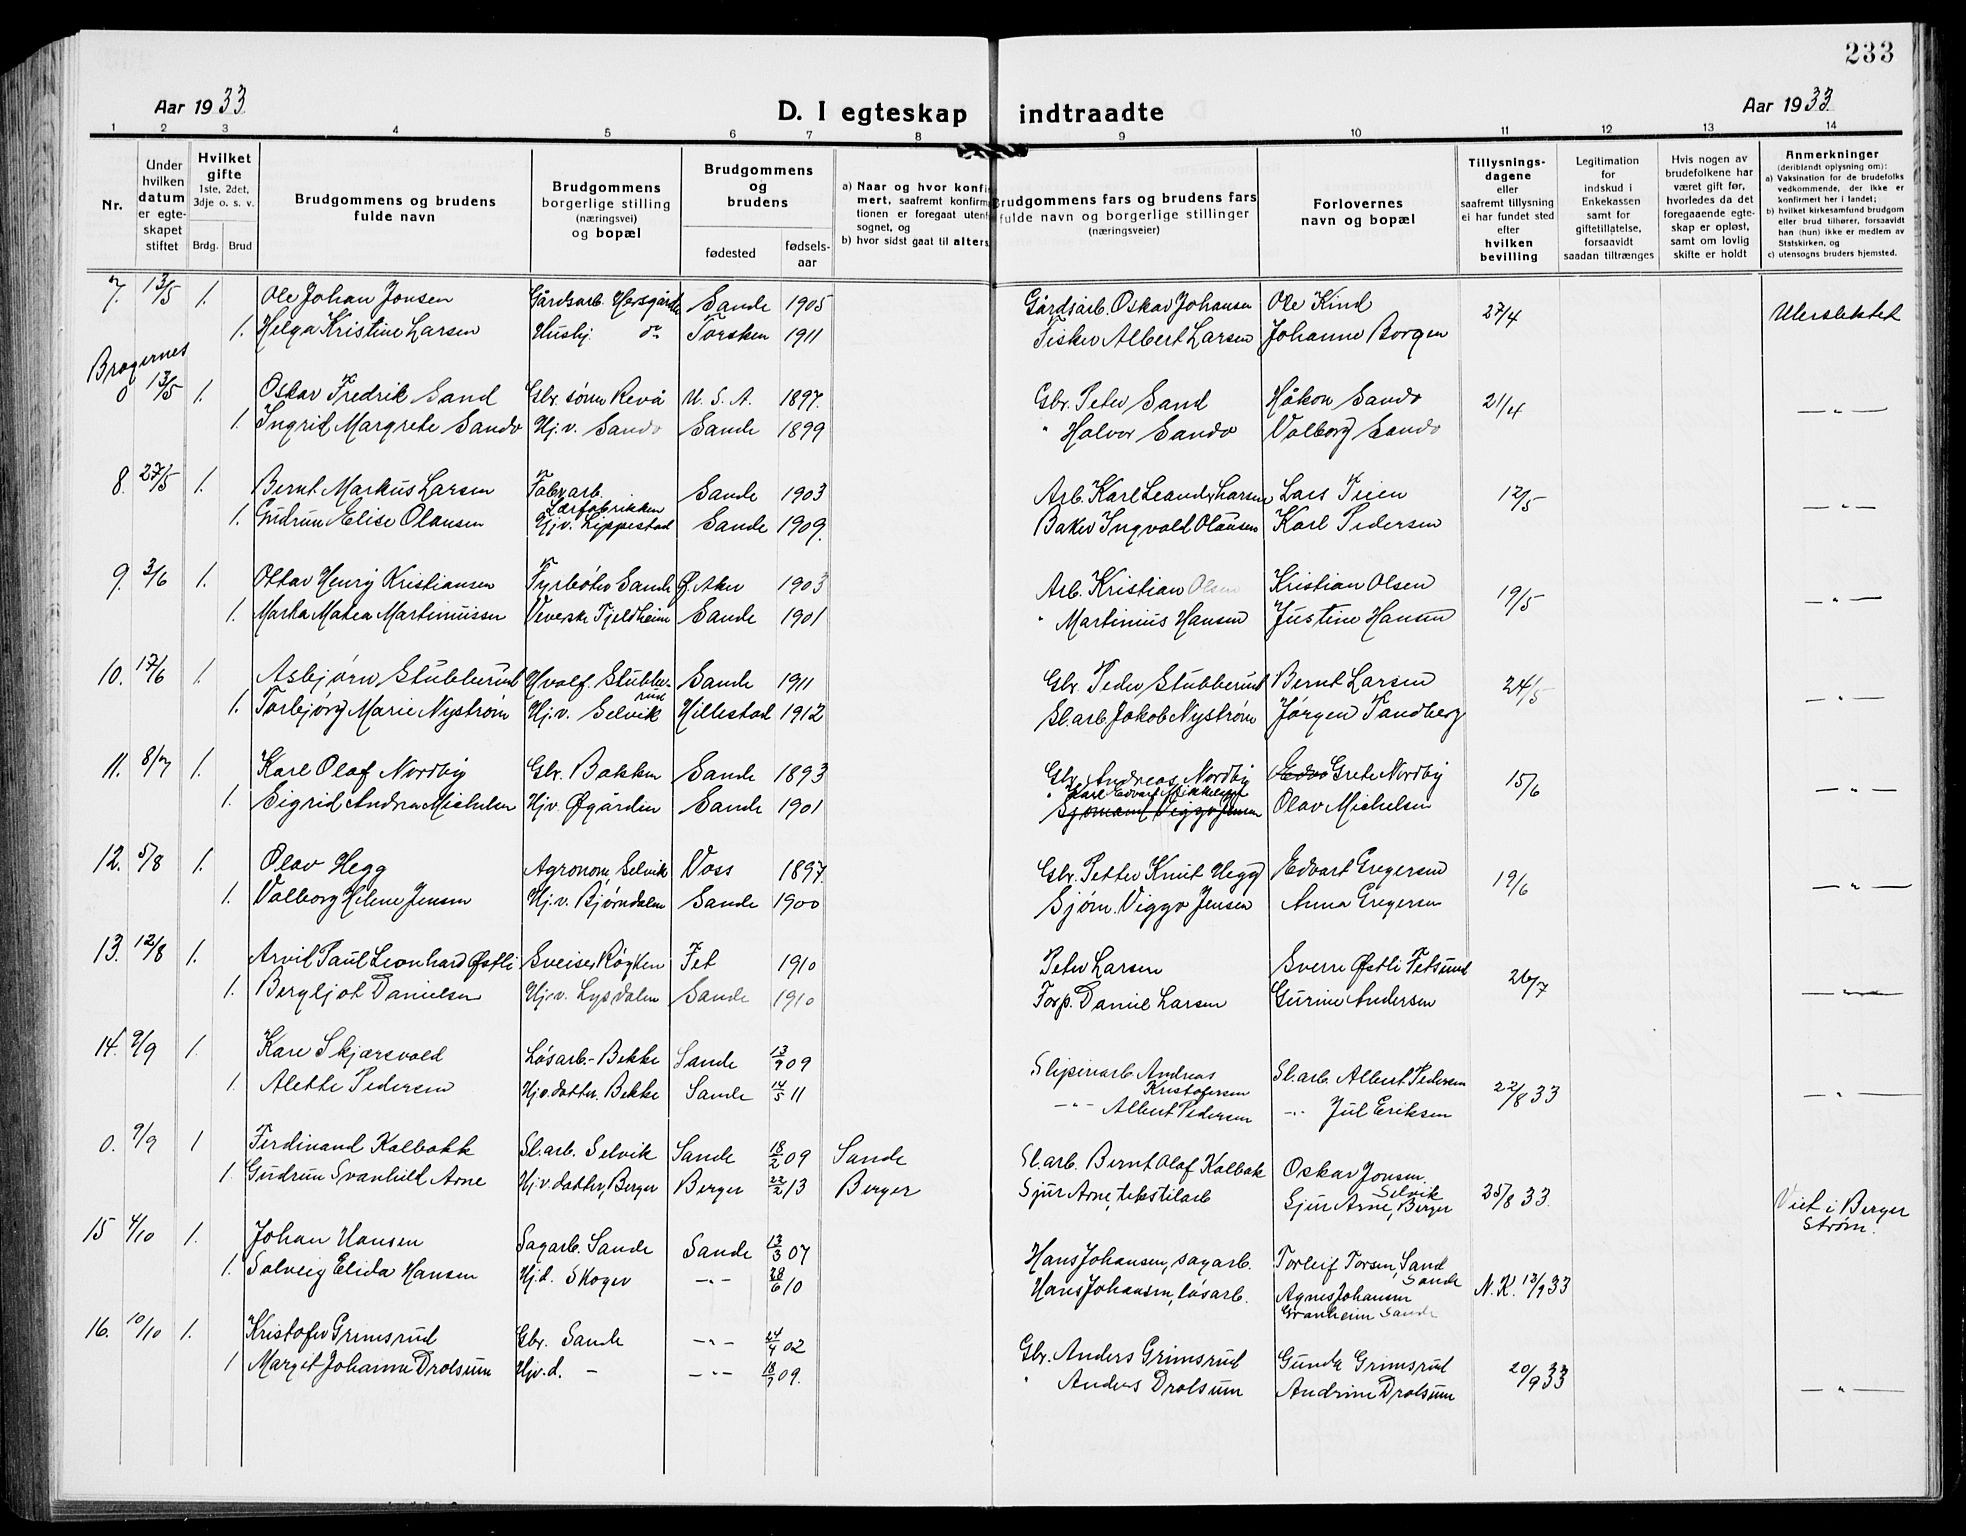 233
Aar 1933
D. I egteskap indtraadte
Aar 1933
1 2 3 4 5 6 7 8 9 10 11 12 13 14
Nr.
Under hvilken datum er egteskapet stiftet
Hvilket gifte 1ste, 2det, 3dje o. s. v.
Brdg. Brud
Brudgommens og brudens fulde navn
Brudgommens borgerlige stilling (næringsvei) og bopæl
Brudgommens og brudens
fødested fødsels-aar
a) Naar og hvor konfirmert, saafremt konfirmationen er foregaat utenfor sognet, og
b) hvor sidst gaat til alters
Brudgommens fars og brudens fars fulde navn og borgerlige stillinger (næringsveier)
Forlovernes navn og bopæl
Tillysnings-dagene eller saafremt tillysning ei har fundet sted efter hvilken bevilling
Legitimation for indskud i Enkekassen samt for giftetillatelse, forsaavidt saadan tiltrænges
Hvis nogen av brudefolkene har været gift før, hvorledes da det foregaaende egteskap er opløst, samt om lovlig skifte er holdt
Anmerkninger (deriblendt oplysning om):
a) Vaksination for de brudefolks vedkommende, der ikke er konfirmert her i landet;
b) hvilket kirkesamfund brudgom eller brud tilhører, forsaavidt han (hun) ikke er medlem av Statskirken, og
c) utensogns bruders hjemsted.
7. 13/5 1. Ole Johan Jonsen Gårdsarb. Sande 1905 Gårdsarb. Oskar Johansen Ole Kind 27/4 Uberslektet
1. Helga Kristine Larsen Hushj. do Torsken 1911 Fisker Albert Larsen Johanne Borgen
Bragernes
0 13/5 1. Oskar Fredrik Sand Gbr. sønn Revå U. S. A. 1897. Gbr. Peter Sand Håkon Sando 21/4 —„—
1. Ingrid Margrete Sando Hj. v. Sando Sande 1899 " Halvor Sando Valborg Sando
8. 27/5 1. Bernt Markus Larsen Fabr. arb. Sande 1903 Arb. Karl Leander Larsen Lars Teien 12/5 —„—
1. Gudrun Elise Olausen Hj. v. Lippestad Sande 1909. Baker Ingvald Olausen Karl Pedersen
9. 3/6 1. Ottar Henry Kristiansen Fyrbøter Sande Ø. Aker 1903 Arb. Kristian Olsen Kristian Olsen 19/5 —„—
1. Marta Matea Martiniussen Veverske Fjeldheim Sande 1901 " Martinius Hansen Justine Hansen
10. 17/6 1. Asbjørn Stubberud Stubberud Sande 1911 Gbr. Peder Stubberud Bernt Larsen 24/5 —„—
1. Torbjørg Marie Nystrøm Hj. v. Selvik Hillestad 1912 Sl. arb. Jakob Nystrøm Jørgen Tandberg
11. 8/7 1. Karl Olaf Nordby Gbr. Bakken Sande 1893 Gbr. Andreas Nordby Grete Nordby 15/6 —„—
1. Sigrid Andrea Michelsen Hj. v. Øgården Sande 1901 " Karl Edvart Mikkelsen Sjømand Viggo Jensen Olav Michelsen
12. 5/8 1. Olav Hegg Agronom, Selvik Voss 1897. Gbr. Petter Knut Hegg Edvart Gregersen 19/6 —„—
1. Valborg Helene Jensen Hj. v. Bjørndalen Sande 1900 Sjøm. Viggo Jensen Anna Gregersen
13. 12/8 1. Arvil Paul Leonhard Østli Sveiser, Røyken Fet 1910 Peter Larsen Sverre Østli Fetsund 26/7 —„—
1. Bergljot Danielsen Hj. v. Lysdalen Sande 1910 Forp. Daniel Larsen Gurine Andersen
14. 9/9 1. Kare Skjærsvold Løsarb. - Bekke Sande 13/9 09 Sliperiarb Andreas Kristofersen Sl. arb. Albert Pedersen 22/8 33 —„—
1. Alette Pedersen Hj. v. datter. Bekke Sande 14/5 11 —"— Albert Pedersen —"— Jul Eriksen
0. 9/9 1 Ferdinand Kalbakk Sl. arb. Selvik Sande 18/2 09 Sande Sl. arb. Bernt Olaf Kalbak Oskar Jonsen, Selvik 25/8 33. Viet i Berger Strøm.
1. Gudrun Svanhild Arne Hj. v. datter, Berger Berger 22/2 13 Berger Sjur Arne, tekstilarb Sjur Arne, Berger
15 4/10 1. Johan Hansen Sagarb. Sande Sande 13/3 07 Hans Johansen, sagarb. Torleif Torsen, Sand Sande N. K. 13/9 33
1. Solveig Elida Hansen Hj. d. Skoger —"— 28/6 10 Hans Johansen, løsarb. Agnes Johansen Granheim Sande
16. 10/10 1. Kristofer Grimsrud Gbr. Sande —"— 24/4 02 Gbr. Anders Grimsrud Gunda Grimsrud 20/9 33 —„—
1 Margit Johanne Drolsum Hj. v. d. - —"— 18/7 09. " Anders Drolsum Andrine Drolsum